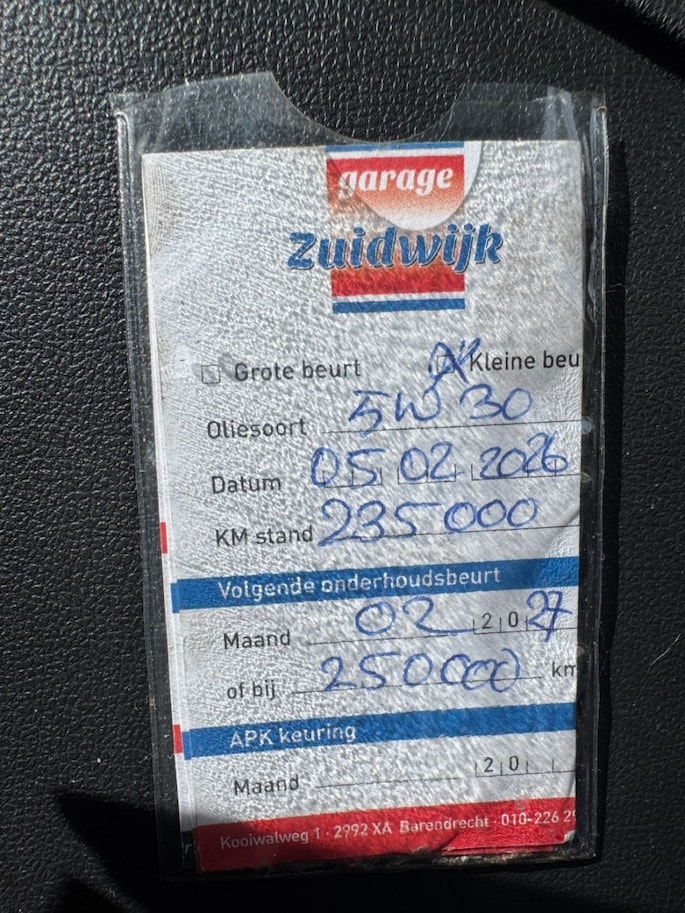 garage
Zuidwijk
Grote beurt Kleine beu
Oliesoort 5W30
Datum 05 02 2026
KM stand 235000
Volgende onderhoudsbeurt
Maand 02 2027
of bij 250000 km
APK keuring
Maand 20
Kooiwalweg 1 · 2992 XA Barendrecht · 010-226 29